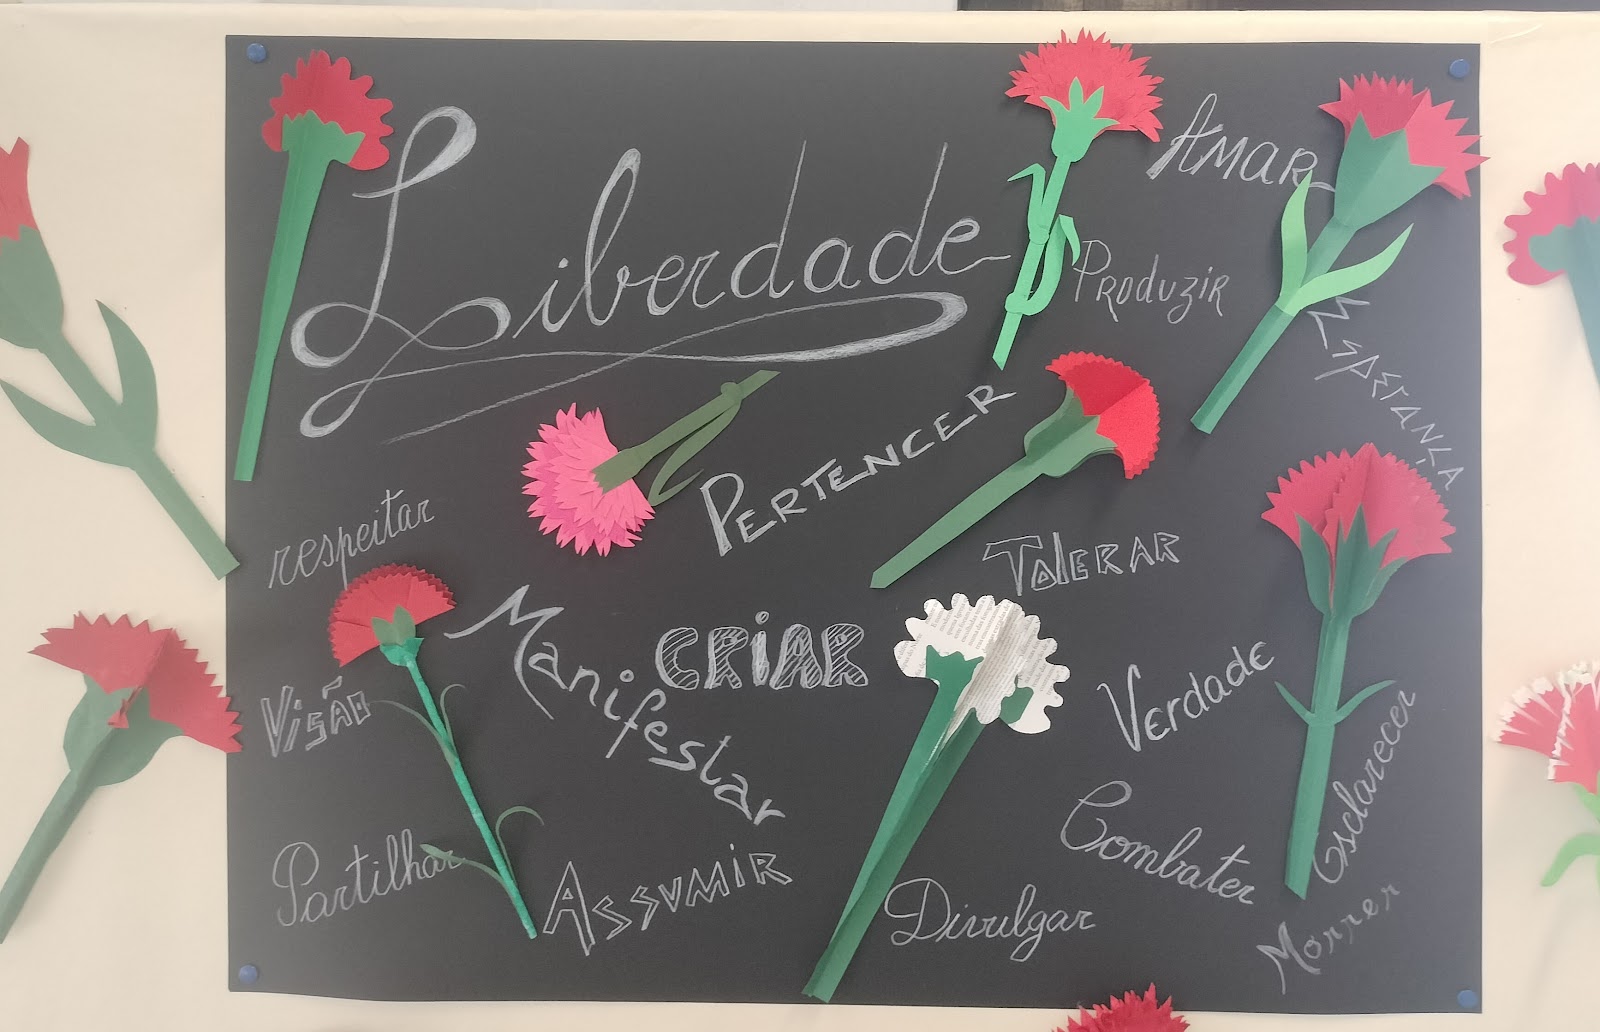 Liberdade
AMAR
PRODUZIR
ESPERANÇA
PERTENCER
respeitar
TOlERAR
Manifestar
CRiAR
VERdAdE
Visão
Esclarecer
Combater
Partilhar
ASSUMIR
Divulgar
Morrer